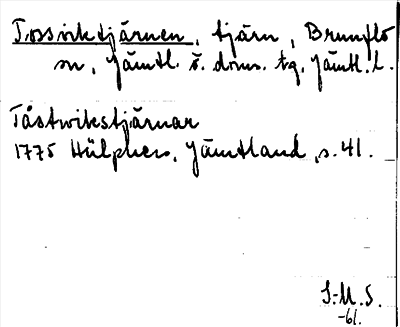 Tossviktjärnen, tjärn, Brunflo
sn, Jämtl. ö. doms. tg, Jämtl. l.
Tåstwikstjärnar
1775 Hülphers, Jämtland, s. 41.
S.-M. S.
-61.